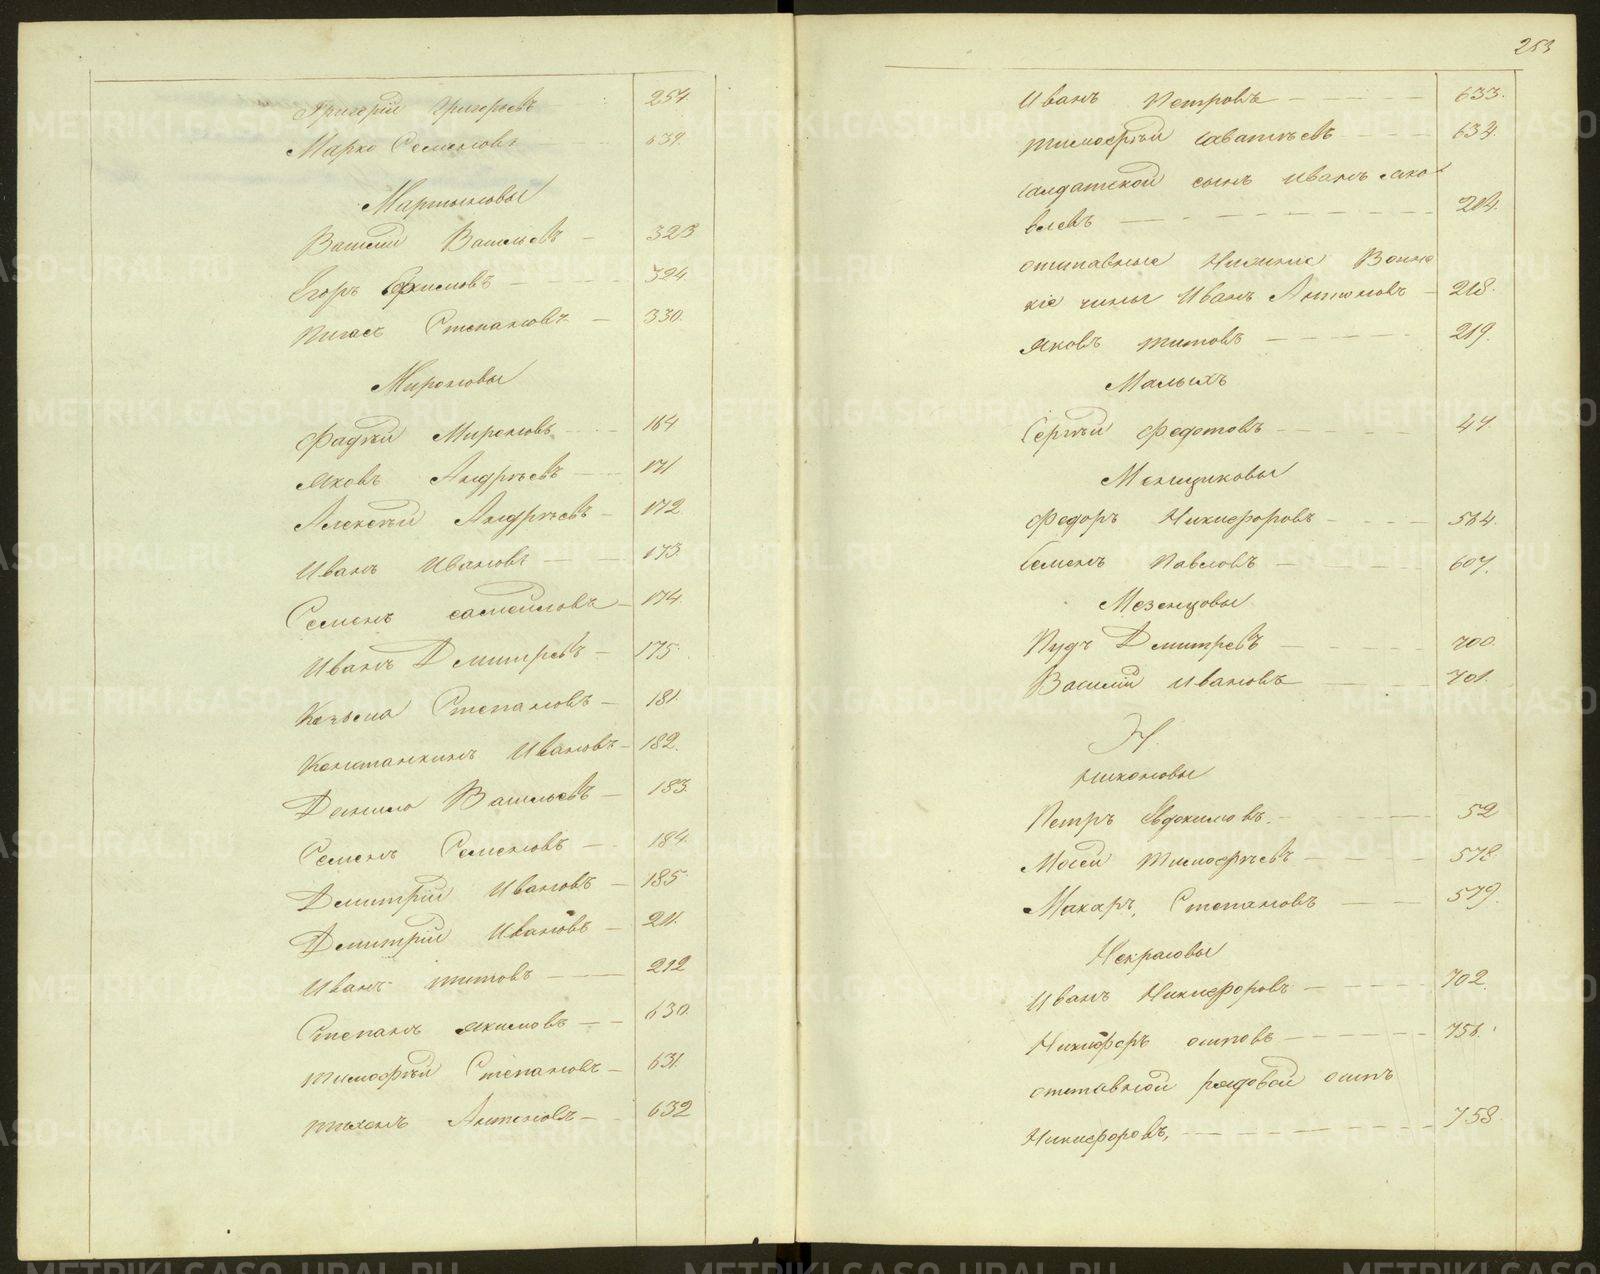 Григорій Григорьевъ 257.
Марко Семеновъ 639.
Мартыновы
Василій Васильевъ — 323
Егоръ Ефимовъ — 324.
Степановъ — 330.
Мироновы
Фадѣй Мироновъ 164
Яковъ Андрѣевъ — 171
Алексѣй Андрѣевъ — 172
Иванъ Ивановъ — 173.
Семенъ Самойловъ — 174.
Иванъ Дмитревъ — 175.
Козьма Степановъ — 181.
Константинъ Ивановъ — 182.
Данило Васильевъ — 183.
Семенъ Семеновъ — 184.
Дмитрій Ивановъ — 185
Дмитрій Ивановъ — 211.
Иванъ Титовъ — 212
Степанъ Якимовъ — 630.
Тимофѣй Степановъ — 631.
Тихонъ Антоновъ — 632
253
Иванъ Петровъ — 633.
Тимофѣй Саватѣевъ — 634.
Салдатской сынъ Иванъ Яко
влевъ — 204.
отставные Нижніе Воинс
кіе чины Иванъ Антоновъ — 218.
Яковъ Титовъ — 219.
Малыхъ
Сергѣй Федотовъ — 47
Менщиковы
Федоръ Никифоровъ — 564.
Семенъ Павловъ — 607.
Мезенцовы
Пудъ Дмитревъ — 700.
Василій Ивановъ — 701.
Н.
Никоновы
Петръ Евдокимовъ. — 52
Мосей Тимофѣевъ — 578.
Макаръ, Степановъ — 579.
Некрасовы
Иванъ Никифоровъ — 702.
Никифоръ Осиповъ — 756.
отставной рядовой Осипъ
Никифоровъ, — 758.
METRIKI.GASO-URAL.RU